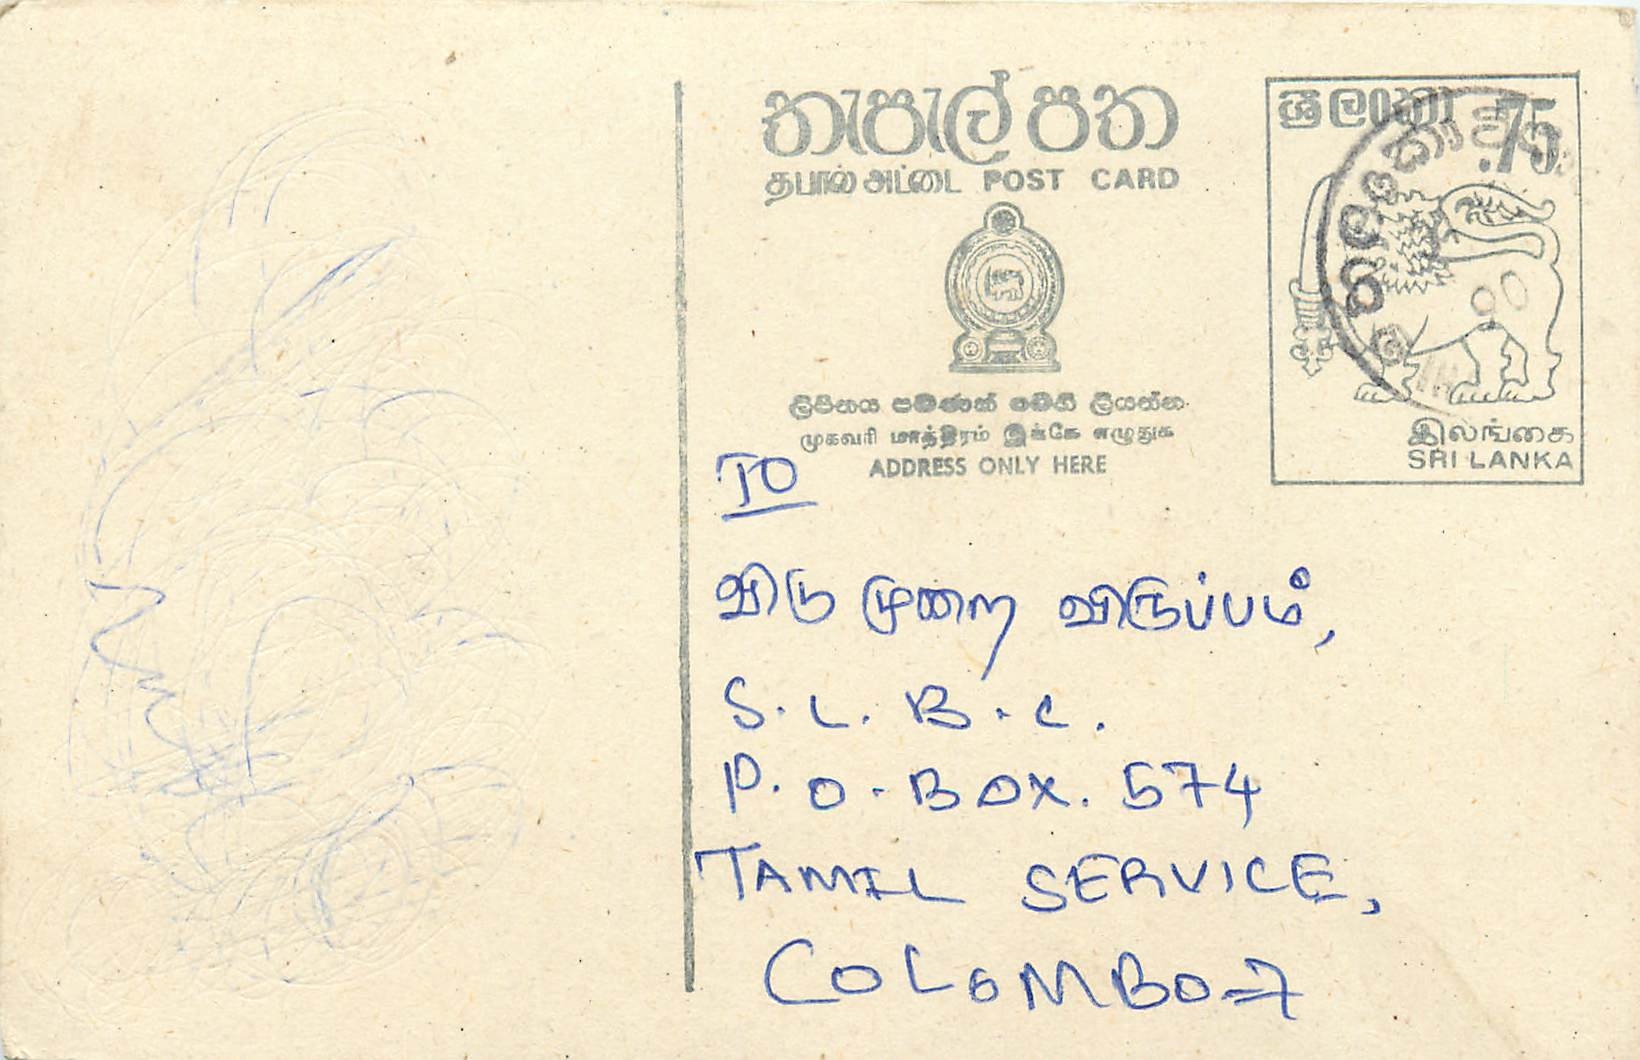 තැපැල් පත
தபால் அட்டை POST CARD
ශ්‍රී ලංකා .75
ලිපිනය පමණක් මෙහි ලියන්න
முகவரி மாத்திரம் இங்கே எழுதுக
ADDRESS ONLY HERE
இலங்கை
SRI LANKA
TO
விடுமுறை விருப்பம்,
S.L.B.C.
P.O.BOX. 574
TAMIL SERVICE,
COLOMBO-7